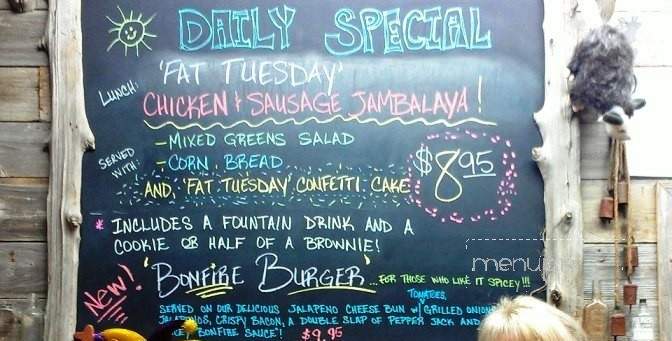 DAILY SPECIAL
LUNCH:
'FAT TUESDAY'
CHICKEN & SAUSAGE JAMBALAYA!
SERVED WITH:
- MIXED GREENS SALAD
- CORN BREAD
AND, 'FAT TUESDAY' CONFETTI CAKE
$8.95
* INCLUDES A FOUNTAIN DRINK AND A
COOKIE OR HALF OF A BROWNIE!
NEW!
'BONFIRE BURGER' ...FOR THOSE WHO LIKE IT SPICEY!!!
TOMATOES,
SERVED ON OUR DELICIOUS JALAPENO CHEESE BUN w/ GRILLED ONIONS
CRISPY BACON, A DOUBLE SLAP OF PEPPER JACK AND
BONFIRE SAUCE'!
$9.95